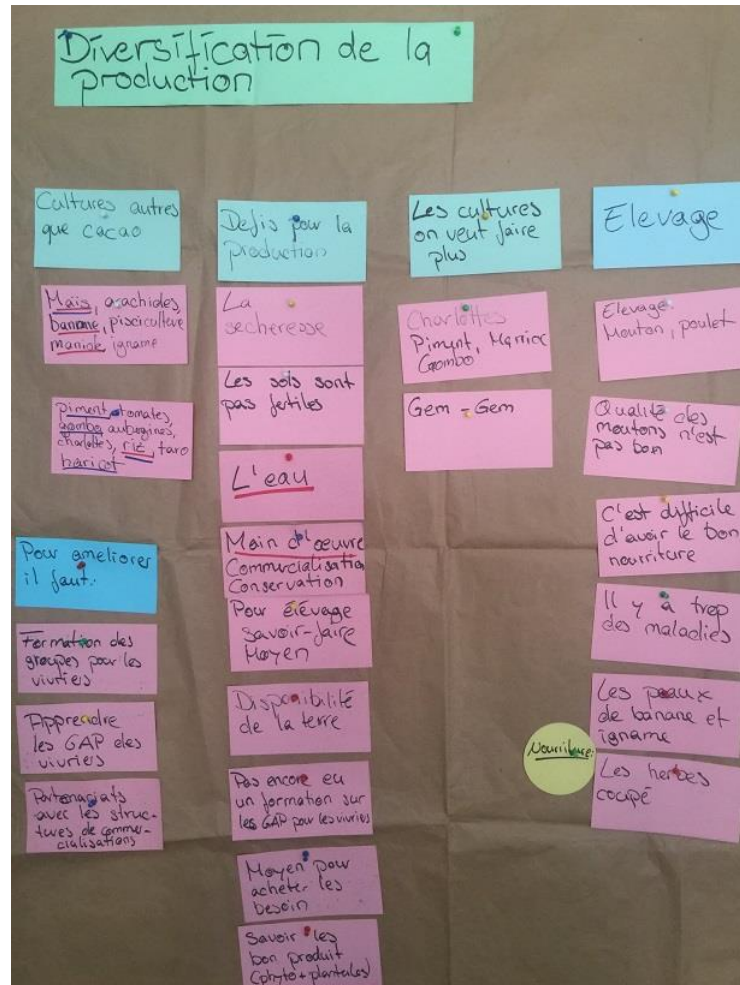 Diversification de la
production
Cultures autres
que cacao
Maïs, arachides,
banane, pisciculture
manioc, igname
Piment, tomates,
gombo, aubergines,
charlottes, riz, taro
haricot
Pour ameliorer
il faut:
Formation des
groupes pour les
vivriers
Apprendre
les GAP des
vivriers
Partenariats
avec les struc-
tures de commer-
cialisations
Defis pour la
production
La
secheresse
Les sols sont
pas fertiles
L'eau
Main d'œuvre
Commercialisation
Conservation
Pour élevage
Savoir-faire
Moyen
Disponibilité
de la terre
Pas encore eu
un formation sur
les GAP pour les vivriers
Moyen pour
acheter les
besoin
Savoir les
bon produit
(phyto + plantules)
Les cultures
on veut faire
plus
Charlottes
Piment, Manioc
Gombo
Gem - Gem
Elevage
Elevage:
Mouton, poulet
Qualité des
moutons n'est
pas bon
C'est difficile
d'avoir le bon
nourriture
Il y a trop
des maladies
Nourriture:
Les peaux
de banane et
igname
Les herbes
coupé